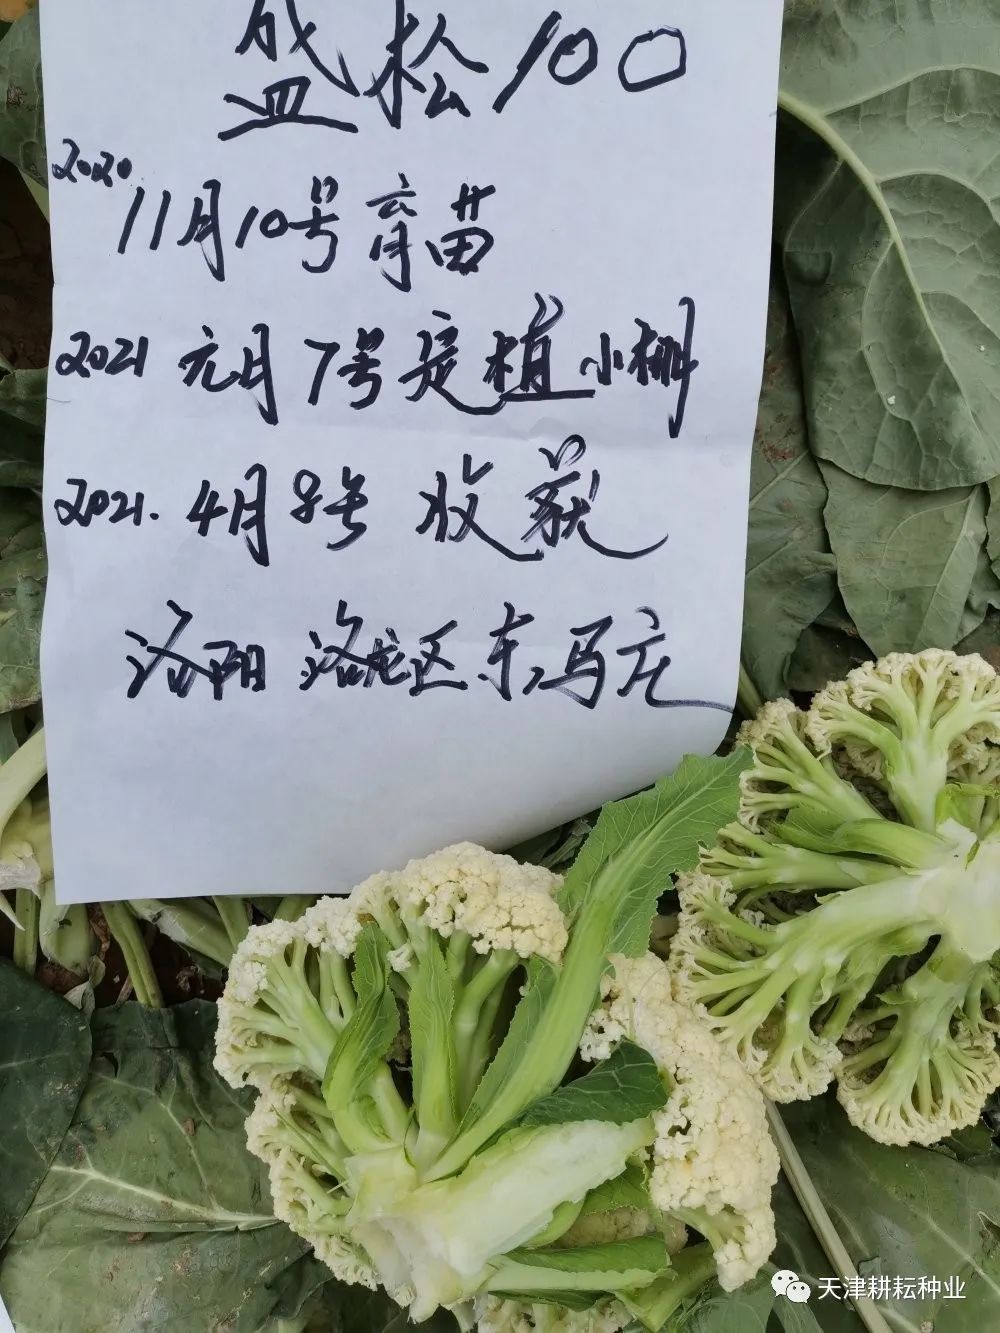 盛松100
2020 11月10号育苗
2021 元月7号定植小棚
2021.4月8号 收获
洛阳 洛龙区东马庄
天津耕耘种业